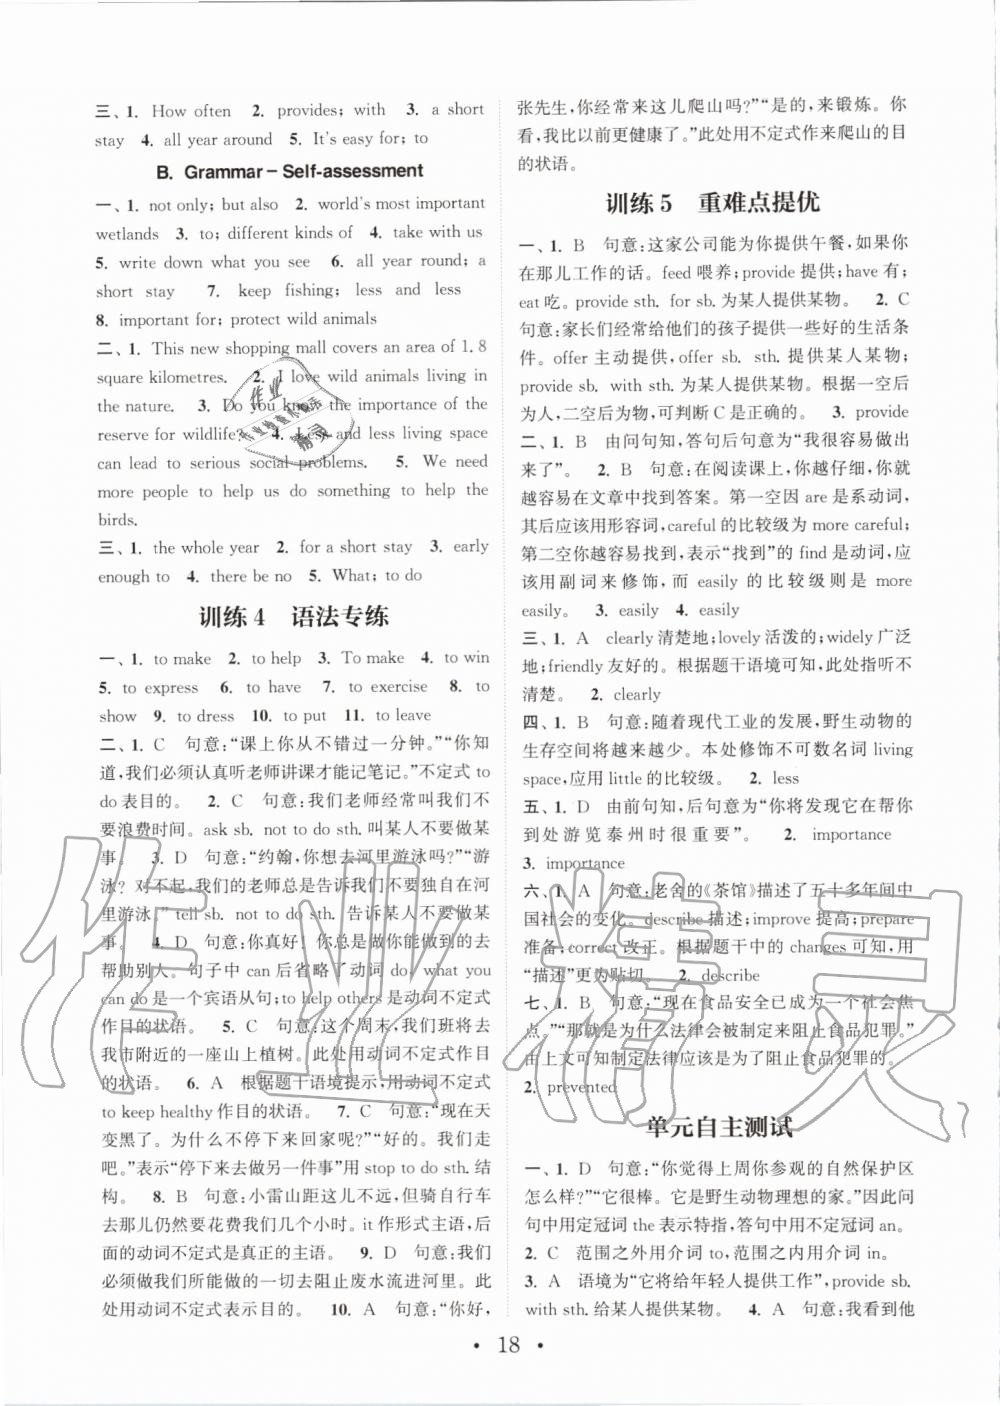 三、1. How often 2. provides; with 3. a short
stay 4. all year around 5. It's easy for; to
B. Grammar – Self-assessment
一、1. not only; but also 2. world's most important
wetlands 3. to; different kinds of 4. take with us
5. write down what you see 6. all year round; a
short stay 7. keep fishing; less and less
8. important for; protect wild animals
二、1. This new shopping mall covers an area of 1.8
square kilometres. 2. I love wild animals living in
the nature. 3. Do you know the importance of the
reserve for wildlife? 4. Less and less living space
can lead to serious social problems. 5. We need
more people to help us do something to help the
birds.
三、1. the whole year 2. for a short stay 3. early
enough to 4. there be no 5. What; to do
训练4 语法专练
一、1. to make 2. to help 3. To make 4. to win
5. to express 6. to have 7. to exercise 8. to
show 9. to dress 10. to put 11. to leave
二、1. C 句意:“课上你从不错过一分钟。”“你知
道,我们必须认真听老师讲课才能记笔记。”不定式 to
do表目的。 2. C 句意:我们老师经常叫我们不
要浪费时间。ask sb. not to do sth.叫某人不要做某
事。 3. D 句意:“约翰,你想去河里游泳吗?”“游
泳?对不起,我们的老师总是告诉我们不要独自在河
里游泳。”tell sb. not to do sth. 告诉某人不要做某
事。 4. D 句意:你真好!你总是做你能做到的去
帮助别人。句子中 can 后省略了动词 do。what you
can do是一个宾语从句;to help others是动词不定式
作目的状语。 5. C 句意:这个周末,我们班将去
我市附近的一座山上植树。此处用动词不定式作目
的状语。 6. A 根据题干语境提示,用动词不定式
to keep healthy作目的状语。 7. C 句意:“现在天
变黑了。为什么不停下来回家呢?”“好的。我们走
吧。”表示“停下来去做另一件事”用 stop to do sth.结
构。 8. B 句意:小雷山距这儿不远,但骑自行车
去那儿仍然要花费我们几个小时。it 作形式主语,后
面的动词不定式是真正的主语。 9. D 句意:我们
必须做我们所能做的一切去阻止废水流进河里。此
处用动词不定式表示目的。 10. A 句意:“你好,
张先生,你经常来这儿爬山吗?”“是的,来锻炼。你
看,我比以前更健康了。”此处用不定式作来爬山的目
的状语。
训练5 重难点提优
一、1. B 句意:这家公司能为你提供午餐,如果你
在那儿工作的话。feed 喂养;provide 提供;have 有;
eat吃。provide sth. for sb.为某人提供某物。 2. C
句意:家长们经常给他们的孩子提供一些好的生活条
件。offer 主动提供,offer sb. sth. 提供某人某物;
provide sb. with sth.为某人提供某物。根据一空后
为人,二空后为物,可判断 C 是正确的。 3. provide
二、1. B 由问句知,答句后句意为“我很容易做出
来了”。 2. B 句意:在阅读课上,你越仔细,你就
越容易在文章中找到答案。第一空因 are 是系动词,
其后应该用形容词,careful 的比较级为 more careful;
第二空你越容易找到,表示“找到”的 find 是动词,应
该用副词来修饰,而 easily 的比较级则是 more
easily。 3. easily 4. easily
三、1. A clearly清楚地;lovely 活泼的;widely 广泛
地;friendly友好的。根据题干语境可知,此处指听不
清楚。 2. clearly
四、1. B 句意:随着现代工业的发展,野生动物的
生存空间将越来越少。本处修饰不可数名词 living
space,应用 little的比较级。 2. less
五、1. D 由前句知,后句意为“你将发现它在帮你
到处游览泰州时很重要”。 2. importance
3. importance
六、1. A 句意:老舍的《茶馆》描述了五十多年间中
国社会的变化。describe 描述;improve 提高;prepare
准备;correct 改正。根据题干中的 changes 可知,用
“描述”更为贴切。 2. describe
七、1. B 句意:“现在食品安全已成为一个社会焦
点。”“那就是为什么法律会被制定来阻止食品犯罪。”
由上文可知制定法律应该是为了阻止食品犯罪的。
2. prevented
单元自主测试
一、1. D 句意:“你觉得上周你参观的自然保护区
怎么样?”“它很棒。它是野生动物理想的家。”因此问
句中用定冠词 the 表示特指,答句中用不定冠词 an。
2. C 范围之外用介词 to,范围之内用介词 in。
3. A 语境为“它将给年轻人提供工作”,provide sb.
with sth.给某人提供某物。 4. A 句意:我看到他
• 18 •
作业精灵